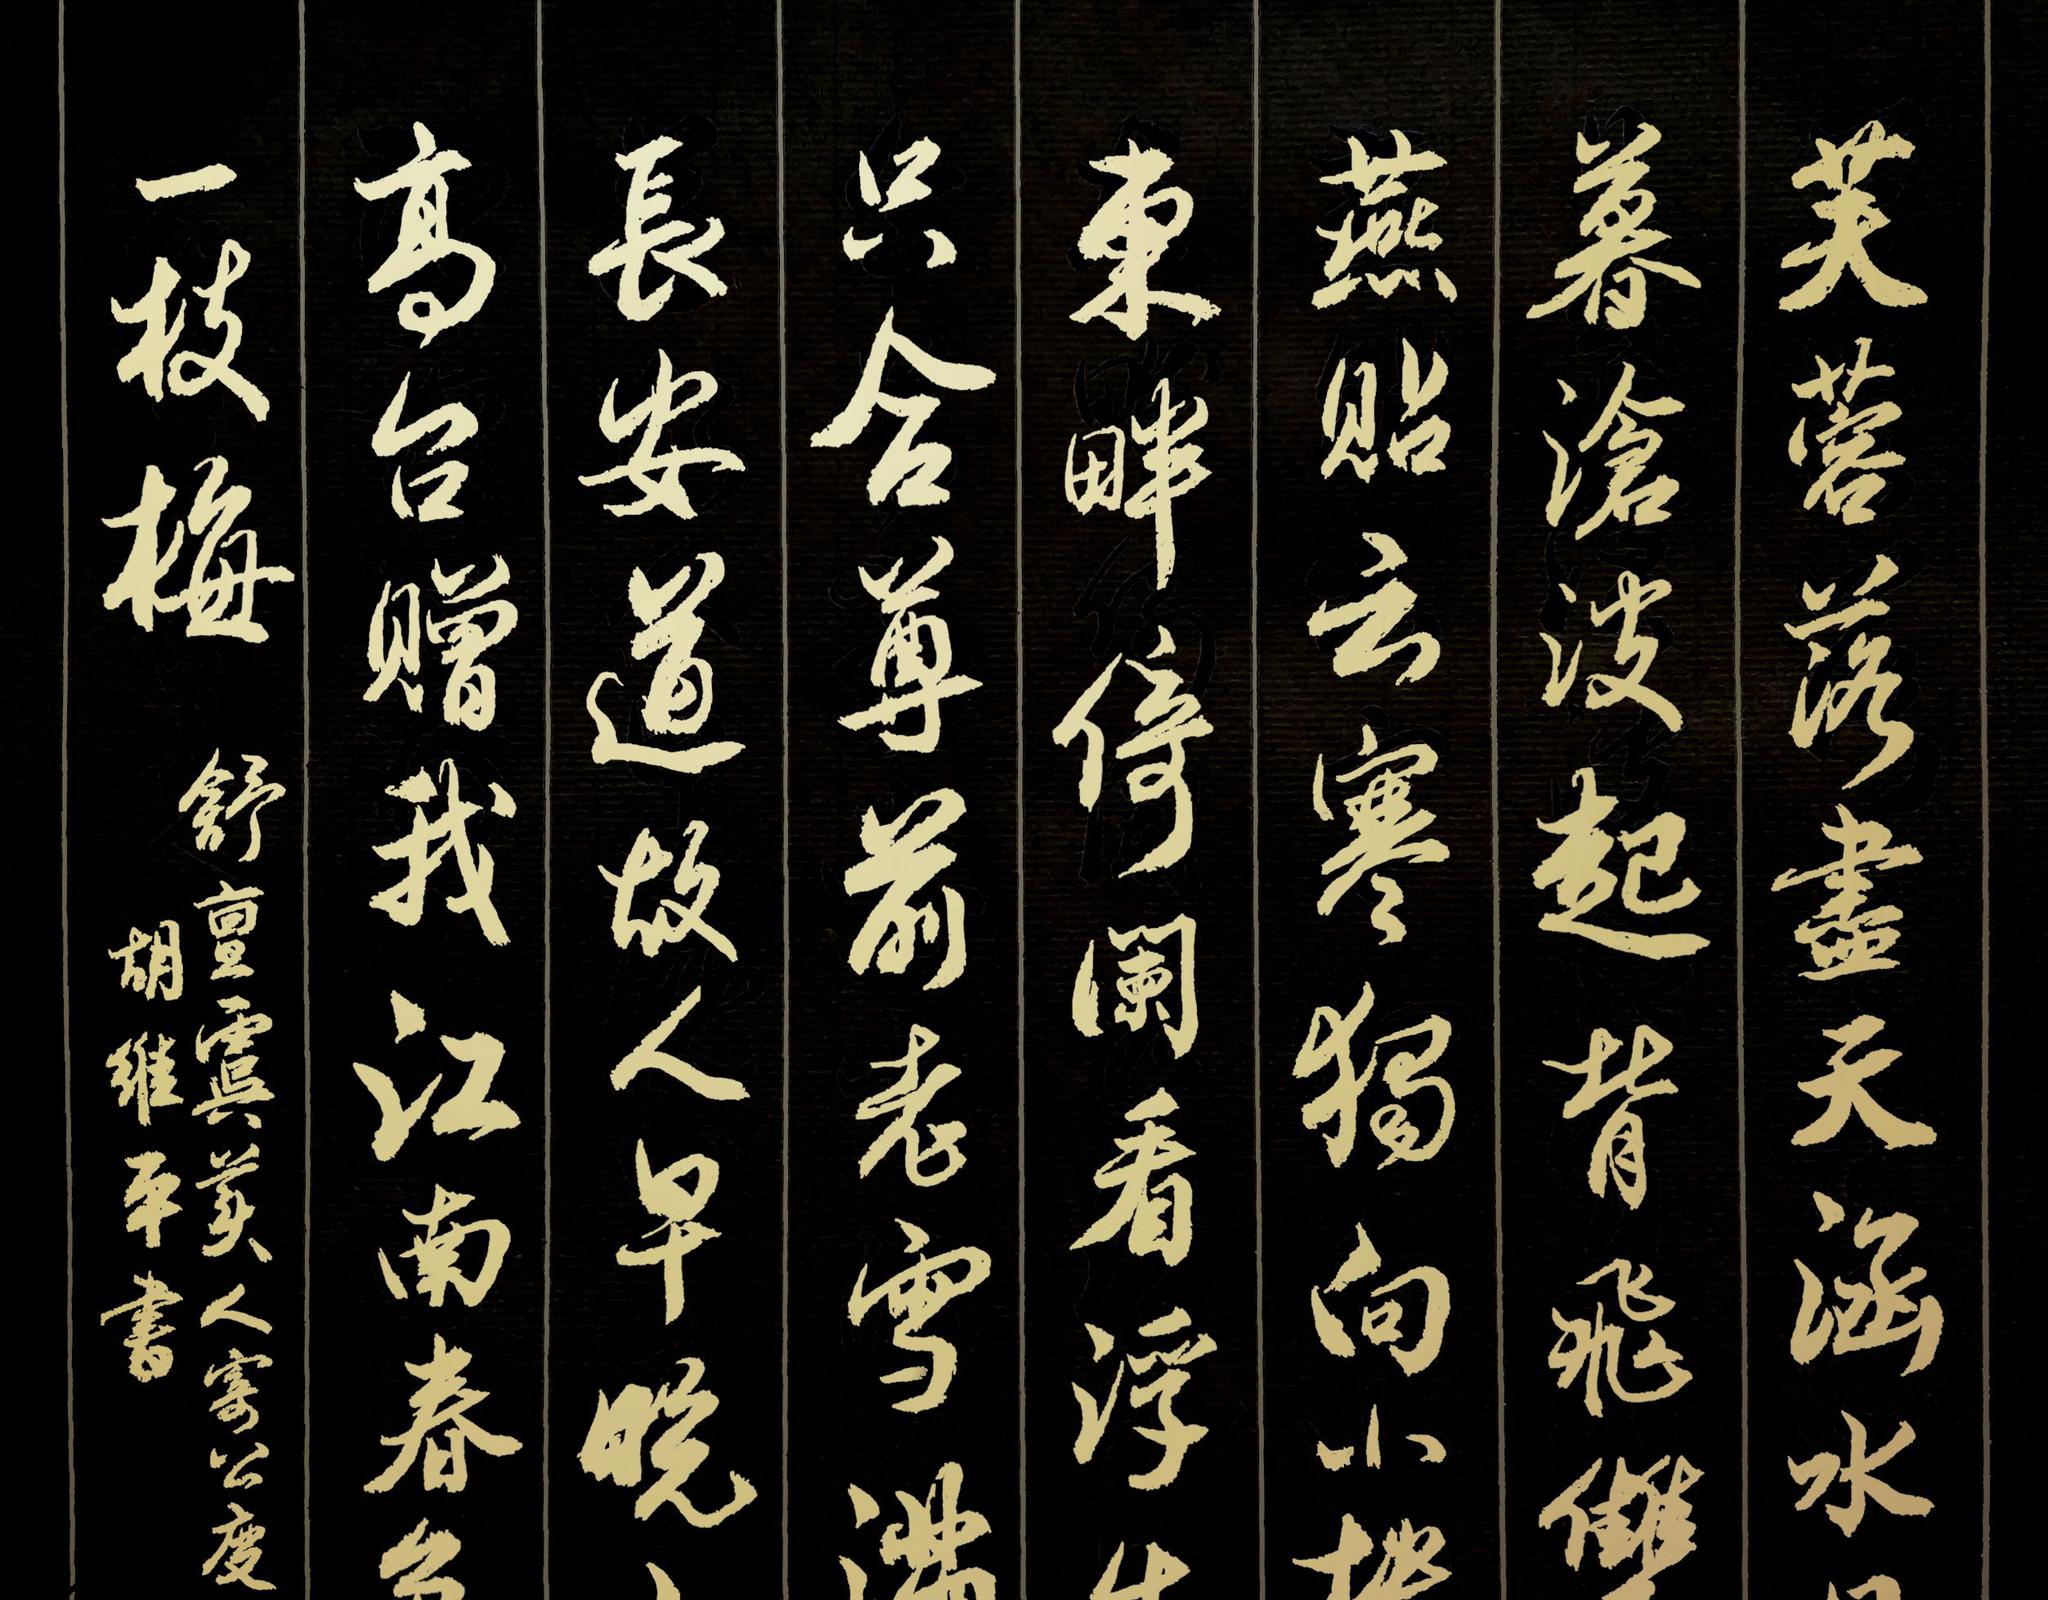 芙蓉落盡天涵水日
暮滄波起背飛雙
燕貼云寒獨向小樓
東畔倚闌看浮生
只合尊前老雪滿
長安道故人早晚
高台贈我江南春色
一枝梅
舒亶虞美人寄公度
胡維平書